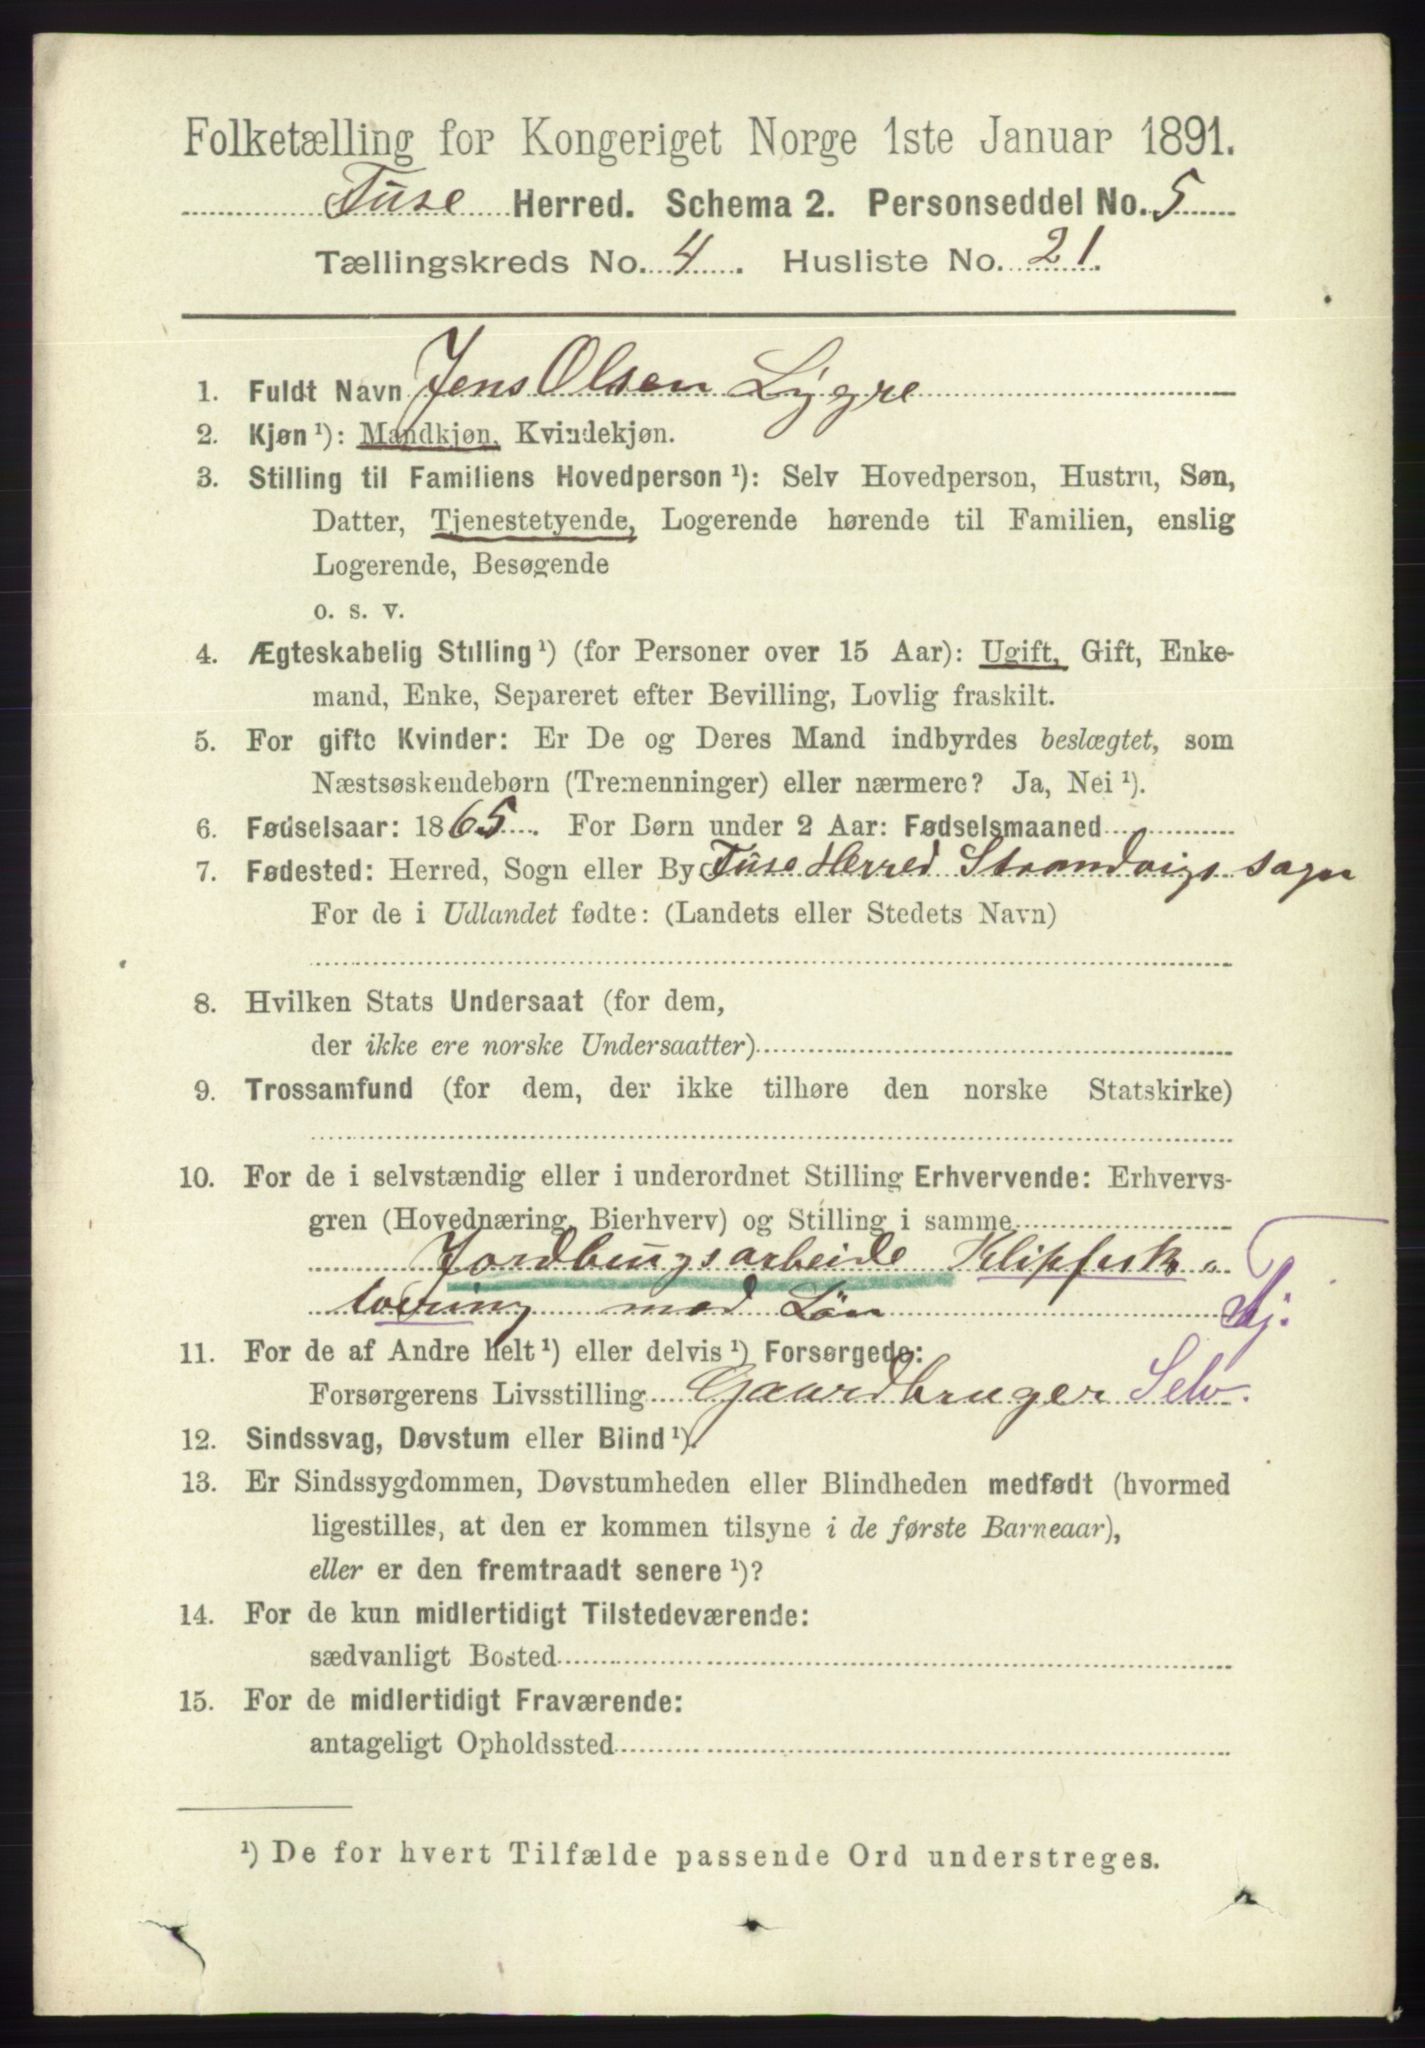 Folketælling for Kongeriget Norge 1ste Januar 1891.
Fuse Herred. Schema 2. Personseddel No. 5
Tællingskreds No. 4. Husliste No. 21.
1. Fuldt Navn Jens Olsen Lygre
2. Kjøn ¹): Mandkjøn, Kvindekjøn.
3. Stilling til Familiens Hovedperson ¹): Selv Hovedperson, Hustru, Søn,
Datter, Tjenestetyende, Logerende hørende til Familien, enslig
Logerende, Besøgende
o. s. v.
4. Ægteskabelig Stilling ¹) (for Personer over 15 Aar): Ugift, Gift, Enke-
mand, Enke, Separeret efter Bevilling, Lovlig fraskilt.
5. For gifte Kvinder: Er De og Deres Mand indbyrdes beslægtet, som
Næstsøskendebørn (Tremenninger) eller nærmere? Ja, Nei ¹).
6. Fødselsaar: 1865. For Børn under 2 Aar: Fødselsmaaned
7. Fødested: Herred, Sogn eller By Fuse Herred Strandvigs sogn
For de i Udlandet fødte: (Landets eller Stedets Navn)
8. Hvilken Stats Undersaat (for dem,
der ikke ere norske Undersaatter)
9. Trossamfund (for dem, der ikke tilhøre den norske Statskirke)
10. For de i selvstændig eller i underordnet Stilling Erhvervende: Erhvervs-
gren (Hovednæring, Bierhverv) og Stilling i samme
Jordbrugsarbeide Klipfisk"
tørring med Løn Tj.
11. For de af Andre helt ¹) eller delvis ¹) Forsørgede:
Forsørgerens Livsstilling Gaardbruger Selv.
12. Sindssvag, Døvstum eller Blind ¹).
13. Er Sindssygdommen, Døvstumheden eller Blindheden medfødt (hvormed
ligestilles, at den er kommen tilsyne i de første Barneaar),
eller er den fremtraadt senere ¹)?
14. For de kun midlertidigt Tilstedeværende:
sædvanligt Bosted
15. For de midlertidigt Fraværende:
antageligt Opholdssted
¹) De for hvert Tilfælde passende Ord understreges.